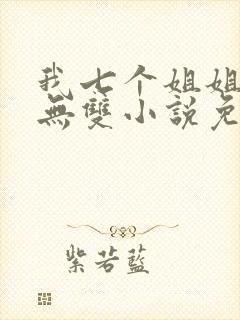 我七个姐姐
無雙小說免
紫若藍